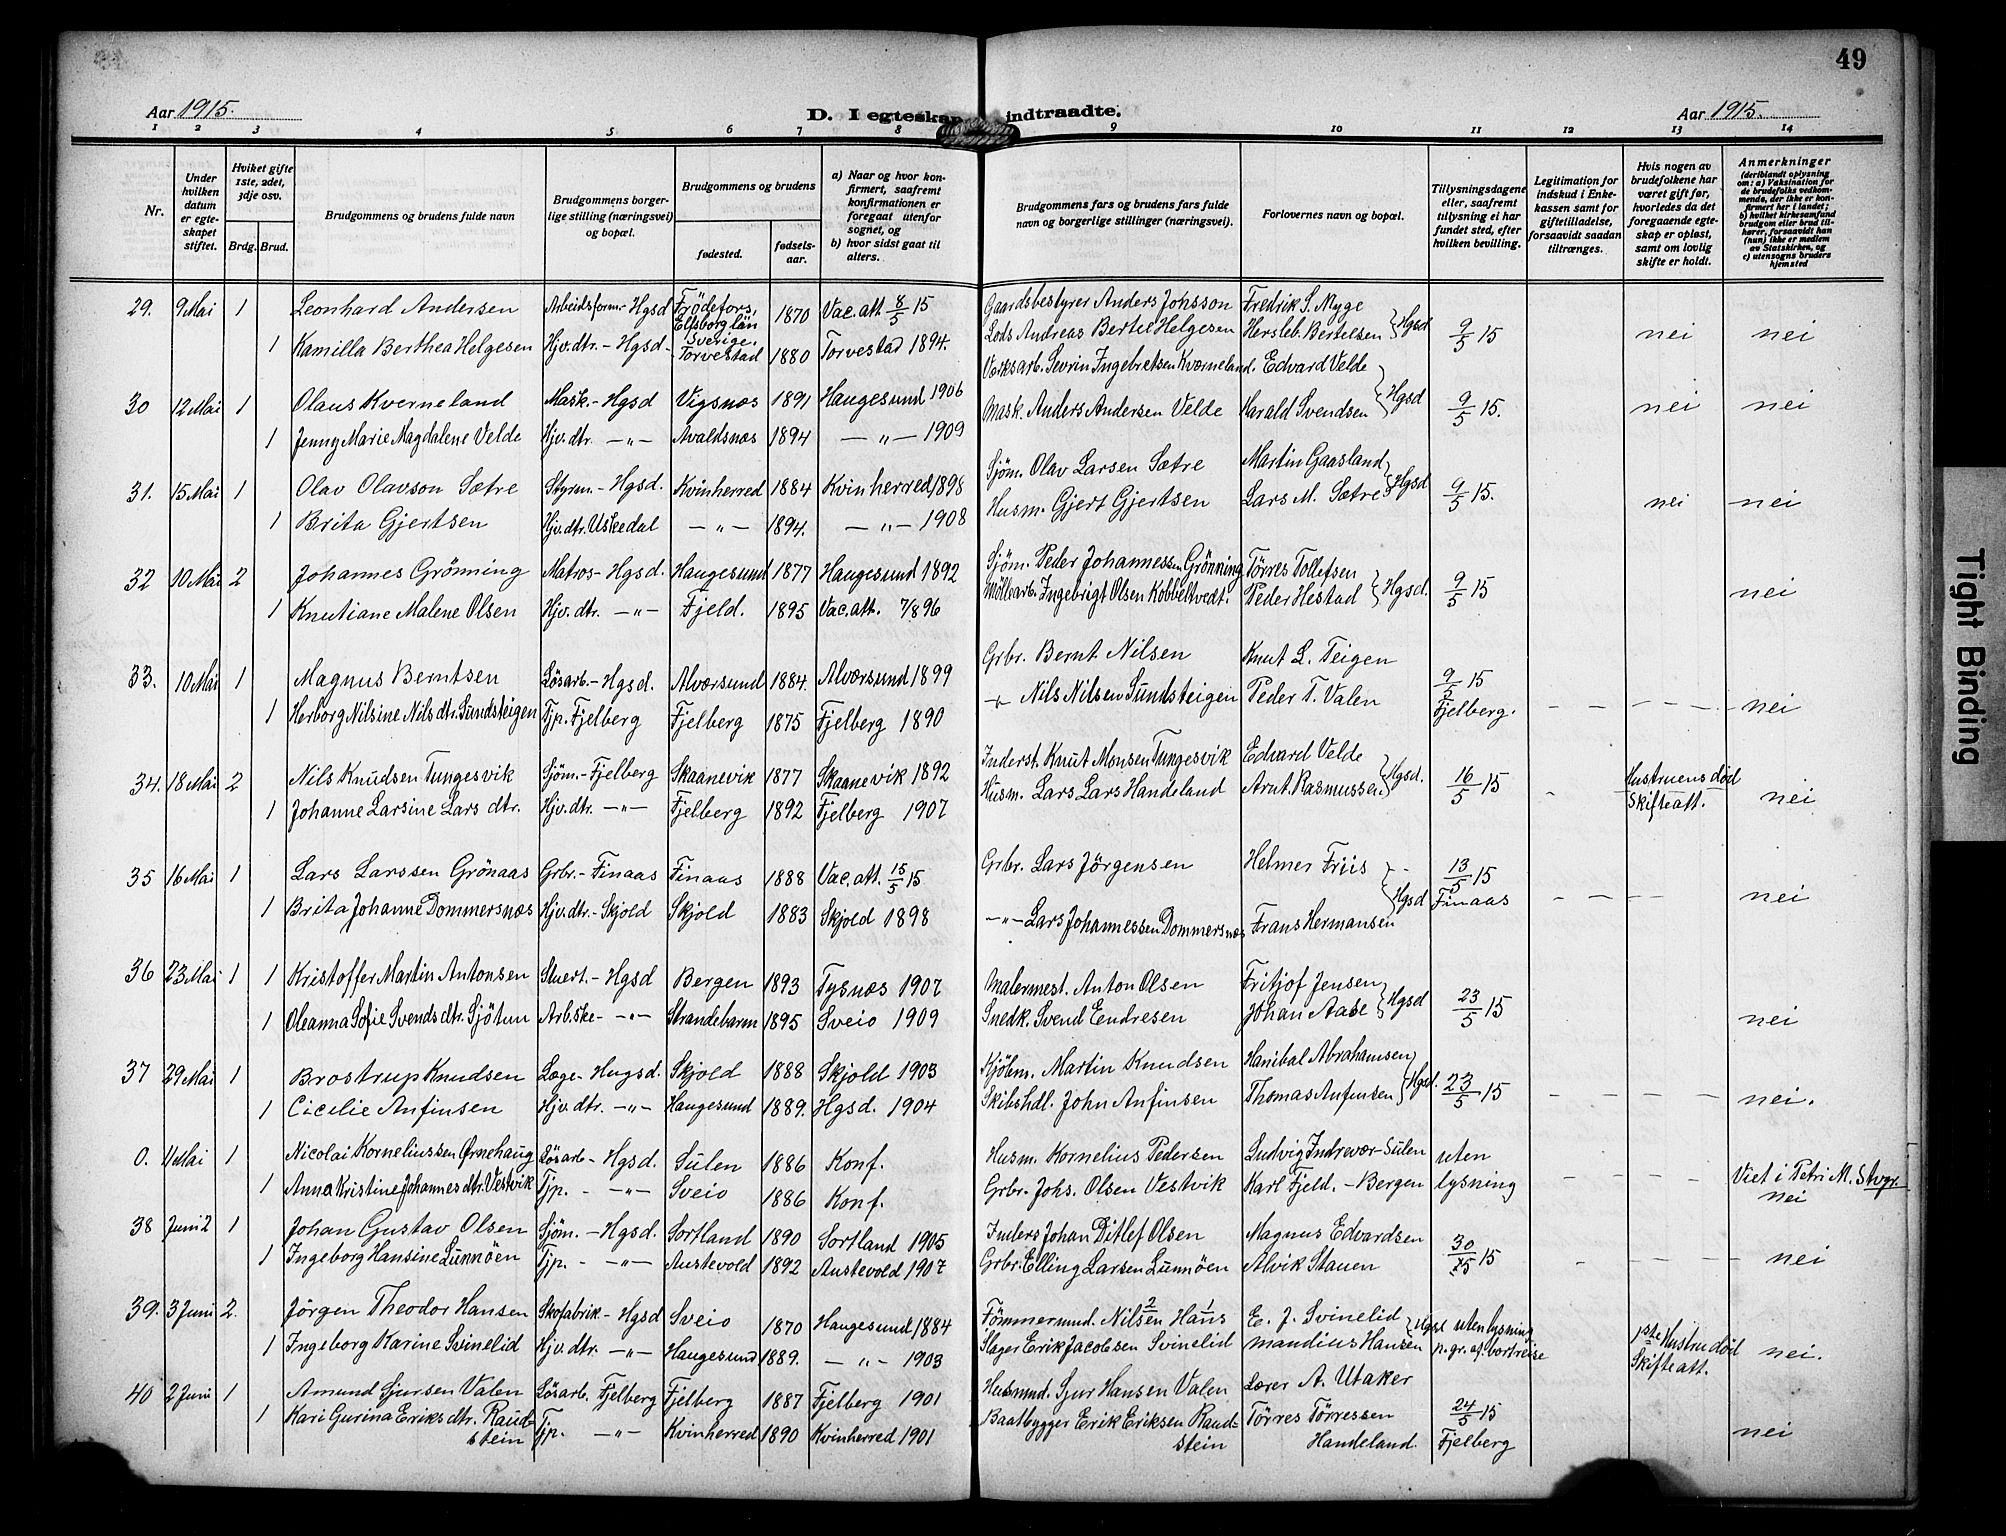 49
Aar 1915.
D. I egteskap indtraadte.
Aar 1915.
1 2 3 4 5 6 7 8 9 10 11 12 13 14
Nr.
Under hvilken datum er egteskapet stiftet.
Hviket gifte 1ste, 2det, 3dje osv.
Brdg. Brud.
Brudgommens og brudens fulde navn
Brudgommens borgerlige stilling (næringsvei) og bopæl.
Brudgommens og brudens
fødested.
fødselsaar.
a) Naar og hvor konfirmert, saafremt konfirmationen er foregaat utenfor sognet, og
b) hvor sidst gaat til alters.
Brudgommens fars og brudens fars fulde navn og borgerlige stillinger (næringsvei).
Forlovernes navn og bopæl.
Tillysningsdagene eller, saafremt tillysning ei har fundet sted, efter hvilken bevilling.
Legitimation for indskud i Enkekassen samt for giftetilladelse, forsaavidt saadan tiltrænges.
Hvis nogen av brudefolkene har været gift før, hvorledes da det foregaaende egteskap er opløst, samt om lovlig skifte er holdt.
Anmerkninger
(deriblandt oplysning om: a) Vaksination for de brudefolks vedkommende, der ikke er konfirmert her i landet; b) hvilket kirkesamfund brudgom eller brud tilhører, forsaavidt han (hun) ikke er medlem av Statskirken, og c) utensogns bruders hjemsted
29. 9 Mai 1 Leonhard Andersen Arbeidsform.- Hgsd Frödefors, Elfsborg län Sverige. 1870 Vac. att. 8/5 15 Gaardsbestyrer Anders Johsson Fredrik S. Myge
1 Kamilla Berthea Helgesen Hjv. dtr. - Hgsd. Torvestad 1880 Torvestad 1894. Lods Andreas Bertel Helgesen Hersleb. Bertelsen } Hgsd 9/5 15 nei nei
30 12 Mai 1 Olaus Kverneland Mask.- Hgsd Vigsnos 1891 Haugesund 1906 Værksarb. Sevrin Ingebretsen Kværneland. Edvard Velde
1 Jenny Marie Magdalene Velde Hjv. dtr. -"- Avaldsnæs 1894 -"- 1909 Mask. Anders Andersen Velde Harald Svendsen } Hgsd 9/5 15. nei nei
31. 15 Mai 1 Olav Olavson Sætre Styrm.- Hgsd. Kvinherred 1884 Kvinherred 1898 Sjöm. Olav Larsen Sætre Martin Gaasland
1 Brita Gjertsen Hjv. dtr. Uskedal -"- 1894. -"- 1908 Husm. Gjert Gjertsen Lars M. Sætre } Hgsd 9/5 15. nei nei
32 10 Mai 2 Johannes Grönning Matros- Hgsd. Haugesund 1877 Haugesund 1892 Sjöm. Peder Johannessen Grönning Törres Tollefsen
1 Knutiane Malene Olsen Hjv. dtr. -"- Fjeld. 1895 Vac. att. 7/8 96 Möllearb. Ingebrigt Olsen Kobbeltvedt. Peder Hestad } Hgsd. 9/5 15 nei
33. 10 Mai 1 Magnus Berntsen Lösarb.- Hgsd. Alværsund 1884. Alværsund 1899 Grbr. Bernt Nilsen Knut L. Teigen
1 Herborg Nilsine Nils dtr. Sundsteigen Tjp. Fjelberg Fjelberg 1875 Fjelberg 1890 -"- Nils Nilsen Sundsteigen Peder T. Valen 9/5 15 Fjelberg. - - - - - nei
34. 18 Mai 2 Nils Knudsen Tungesvik Sjöm.- Fjelberg Skaanevik 1877 Skaanevik 1892 Inderst. Knut Monsen Tungesvik Edvard Velde
1 Johanne Larsine Lars dtr. Hjv. dtr. -"- Fjelberg 1892 Fjelberg 1907 Husm. Lars Lars Handeland Arnt. Rasmussen } Hgsd. 16/5 15 - Hustruens död Skifteatt. nei
35 16 Mai 1 Lars Larssen Grönaas Grbr.- Finaas Finaas 1888 Vac. att. 15/5 15 Grbr. Lars Jörgensen Helmer Friis
1 Brita Johanne Dommersnæs Hjv. dtr.- Skjold Skjold 1883 Skjold 1898 -"- Lars Johannessen Dommersnæs Frans Hermansen } Hgsd 13/5 15 Finaas - - - - nei
36 23 Mai 1 1 Kristoffer Martin Antonsen Stuert.- Hgsd Bergen 1893 Tysnæs 1907 Malermest. Anton Olsen Fritjof Jensen
1 Oleanna Sofie Svends dtr. Sjötun Arb.ske- -"- Strandebarm 1895 Sveio 1909 Snedk. Svend Endresen Johan Aase } Hgsd 23/5 15 nei
37 29 Mai 1 Brostrup Knudsen Læge- Hugsd. Skjold 1888 Skjold 1903 Kjöbm. Martin Knudsen Hanibal Abrahamsen
1 Cicilie Anfinsen Hjv. dtr. -"- Haugesund 1889. Hgsd. 1904 Skibshdl. John Anfinsen Thomas Anfinsen } Hgsd. 23/5 15 - - - - nei.
0. 11 Mai 1 Nicolai Korneliussen Ørnehaug Lösarb- Hgsd. Sulen 1886 Konf. Husm. Kornelius Pedersen Ludvig Indrevær- Sulen uten
1 Anna Kristine Johannes dtr. Vestvik Tjp. - -"- Sveio 1886 Konf. Grbr. Johs. Olsen Vestvik Karl Fjeld. - Bergen lysning - - - - Viet i Petri M. Stvgr. nei
38 Juni 2 1 Johan Gustav Olsen Sjöm. - Hgsd. Sortland 1890 Sortland 1905 Inders Johan Ditlef Olsen Magnus Edvardsen
1 Ingeborg Hansine Lunnöen Tjp. - -"- Austevold 1892 Austevold 1907 Grbr. Elling Larsen Lunnöen Alvik Stauen 30/5 15 - - - - nei
39. 3 Juni 2. Jörgen Theodor Hansen Skofabrik- Hgsd Sveio 1870 Haugesund 1884 Tömmermd. Nilsen 2 Hans 1 E. J. Svinelid
1 Ingeborg Karine Svinelid Hjv. dtr. -"- Haugesund 1889. -"- 1903 Slager Erik Jacobsen Svinelid Mandius Hansen } Hgsd uten lysning p. gr. af. bortreise 1ste Hustru död Skifteatt. nei.
40 2 Juni 1 Amund Sjursen Valen Lösarb. Fjelberg Fjelberg 1887 Fjelberg 1901 Husmnd. Sjur Hansen Valen Lærer A. Utaker
1 Kari Gurina Eriks dtr. Raudstein Tjp. -"- Kvinherred 1890 Kvinherred 1901 Baatbygger Erik Eriksen Raudstein Törres Törressen Handeland. 24/5 15 Fjelberg nei
Tight Binding